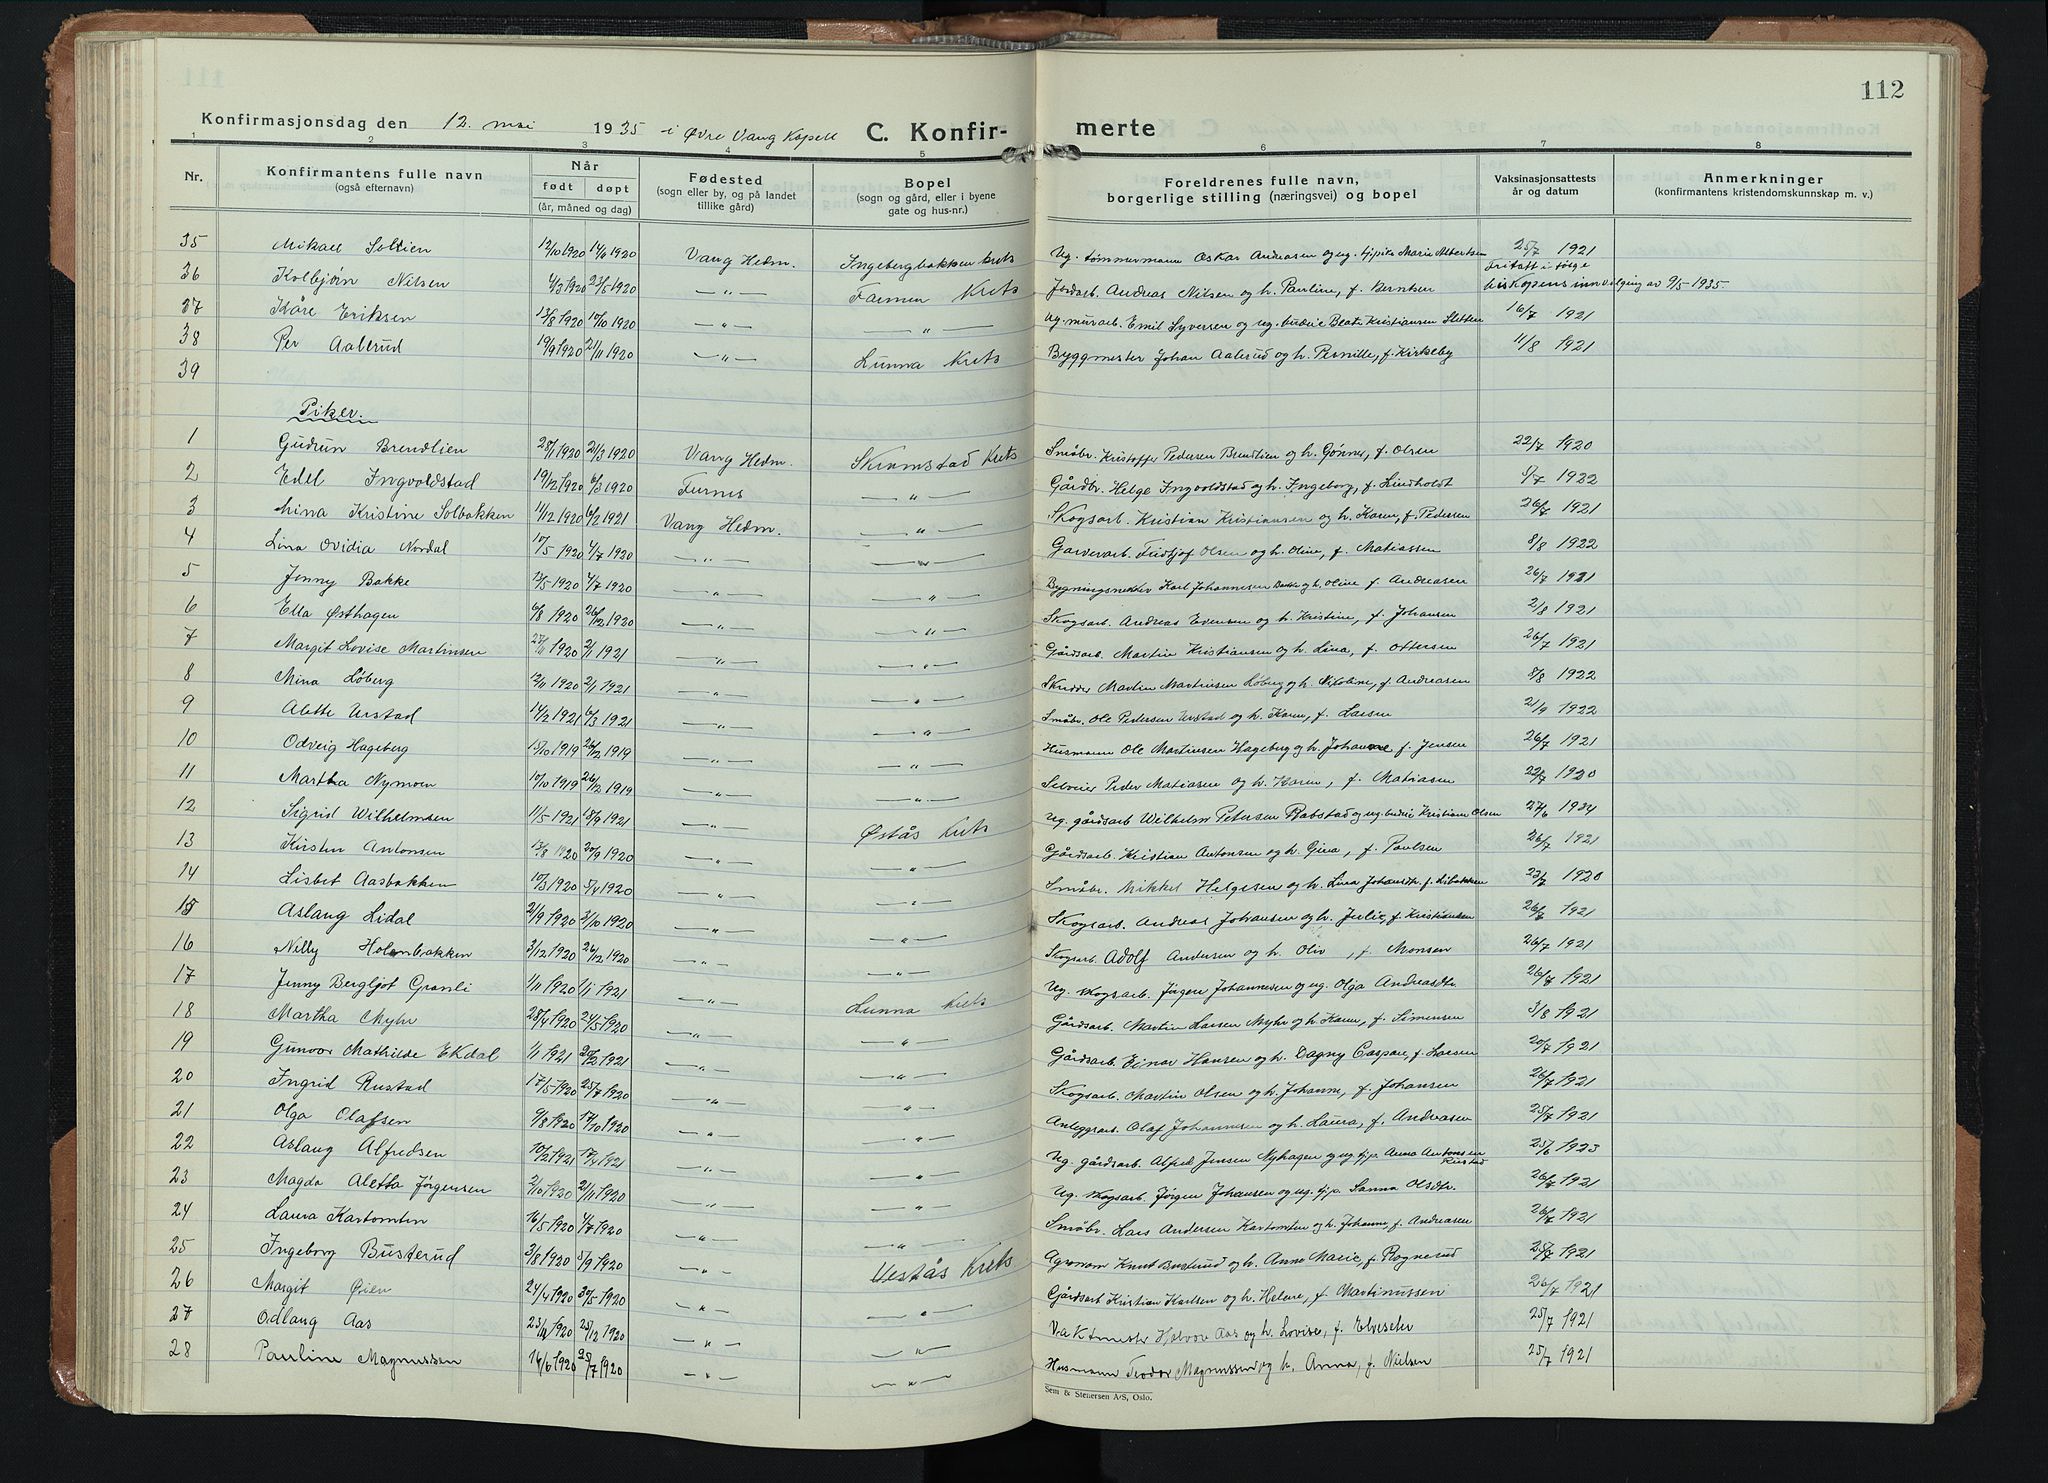 112
Konfirmasjonsdag den 12. mai 1935 i Øvre Vang Kapell C. Konfir- merte
1 2 3 4 5 6 7 8
Nr. Konfirmantens fulle navn (også efternavn) Når født døpt (år, måned og dag) Fødested (sogn eller by, og på landet tillike gård) Bopel (sogn og gård, eller i byene gate og hus-nr.) Foreldrenes fulle navn, borgerlige stilling (næringsvei) og bopel Vaksinasjonsattests år og datum Anmerkninger (konfirmantens kristendomskunnskap m. v.)
35 Mikael Sollien 12/10 1920 14/11 1920 Vang Hedm. Ingebergbakken krets Ug. tømmermann Oskar Andreasen og ug. Marie Albertsen 25/7 1921
36 Kolbjørn Nilsen 4/3 1920 23/5 1920 —"— Farmen Krets Jordarb. Andreas Nilsen og h. Pauline, f. Berntsen Fritatt i følge biskopens innvilging av 9/5 - 1935.
37 Kåre Eriksen 13/8 1920 10/10 1920 —"— —"— Ug. murarb. Emil Syversen og ug. budeie Beate Kristiansen Sletten 16/7 1921
38 Per Aalerud 19/9 1920 21/11 1920 —"— Lunna Krets Byggmester Johan Aalerud og h. Pernille, f. Kirkeby 11/8 1921
39
Piker.
1 Gudrun Brendlien 28/1 1920 21/3 1920 Vang Hedm. Skrumstad Krets Småbr. Kristoffer Pedersen Brendlien og h. Gønner, f. Olsen 22/7 1920
2 Edel Ingvoldstad 19/12 1920 6/3 1920 Furnes —"— Gårdbr. Helge Ingvoldstad og h. Ingeborg, f. Lindholdt 5/7 1922
3 Mina Kristine Solbakken 11/12 1920 6/2 1921 Vang Hedm. —"— Skogsarb. Kristian Kristiansen og h. Karen, f. Pedersen 26/7 1921
4 Lina Ovidia Nordal 10/5 1920 4/7 1920 —"— —"— Garverarb. Fridtjof Olsen og h. Oline, f. Matiassen 8/8 1922
5 Jenny Bakke 13/5 1920 4/7 1920 —"— —"— Karl Johannesen Bakke og h. Oline f. Andreasen 26/7 1921
6 Ella Østhagen 6/8 1920 26/12 1920 —"— —"— Skogsarb. Andreas Evensen og h. Kristine, f. Johansen 2/8 1921
7 Margit Lovise Martinsen 27/11 1920 2/1 1921 —"— —"— Gårdsarb. Martin Kristiansen og h. Lina, f. Ottersen 26/7 1921
8 Mina Løberg 12/11 1920 2/1 1921 —"— —"— Skredder Martin Martinsen Løberg og h. Nikoline, f. Andreasen 8/8 1922
9 Alette Urstad 14/2 1921 6/3 1921 —"— —"— Småbr. Ole Pedersen Urstad og h. Karen, f. Larsen 21/9 1922
10 Odveig Hageberg 15/10 1919 26/12 1919 —"— —"— Husmann Ole Martinsen Hageberg og h. Johanne f. Jensen 26/7 1921
11 Martha Nymoen 10/10 1919 26/12 1919 —"— —"— Selveier Peder Matiasen og h. Karen, f. Matiasen 22/7 1920
12 Sigrid Wilhelmsen 11/5 1921 18/9 1921 —"— Østås Krets Ug. gårdsarb Wilhelm Petersen Rabstad og ug. budeie Kristiane Olsen 27/6 1934
13 Kirsten Antonsen 13/8 1920 20/9 1920 —"— —"— Gårdsarb. Kristian Antonsen og h. Gina, f. Paulsen 26/7 1921
14 Lisbet Aasbakken 10/3 1920 5/4 1920 —"— —"— Småbr. Mikkel Helgesen og h. Lina Johansdtr. f. Libakken 23/7 1920
15 Aslaug Lidal 21/9 1920 3/10 1920 —"— —"— Skogsarb. Andreas Johansen og h. Julie, f. Kristiansen 26/7 1921
16 Nilly Holenbakken 3/12 1920 26/12 1920 —"— —"— Skogsarb. Adolf Andersen og h. Oliv, f. Monsen 26/7 1921
17 Jenny Bergljot Granli 1/11 1920 1/1 1921 —"— Lunna Krets Ug. skogsarb. Jørgen Johannesen og ug. Olga Andreasdtr. 26/7 1921
18 Martha Myhr 28/4 1920 24/5 1920 —"— —"— Gårdsarb. Martin Larsen Myhr og h. Karen, f. Simensen 3/8 1921
19 Gunvor Mathilde Ekdal 1/1 1921 20/2 1921 —"— —"— Gårdsarb. Einar Hansen og h. Dagny Caspara, f. Larsen 20/7 1921
20 Ingrid Rustad 17/5 1920 25/7 1920 —"— —"— Skogsarb. Martin Olsen og h. Johanne, f. Johansen 26/7 1921
21 Olga Olafsen 9/8 1920 17/10 1920 —"— —"— Anleggsarb. Olaf Johannesen og h. Laura, f. Andreasen 25/7 1921
22 Aslaug Alfredsen 10/2 1921 17/4 1921 —"— —"— Ug. gårdsarb. Alfred Jensen Myhagen og ug. tjp. Anna Antonsen Rustad 25/6 1923
23 Magda Aletta Jørgensen 2/10 1920 21/11 1920 —"— —"— Ug. skogsarb. Jørgen Johansen og ug. tjp. Sanna Olsdtr. 26/7 1921
24 Laura Kartomten 16/5 1920 4/7 1920 —"— —"— Småbr. Lars Andersen Kartomten og h. Johanne, f. Andreasen 26/7 1921
25 Ingeborg Busterud 3/8 1920 5/9 1920 —"— Vestås Krets Agronom Knut Busterud og h. Anne Marie, f. Rognerud 25/7 1921
26 Margit Øien 24/4 1920 30/5 1920 —"— —"— Gårdsarb Kristian Karlsen og h. Helene, f. Martinussen 26/7 1921
27 Odlaug Aas 23/11 1920 25/12 1920 —"— —"— Vaktmester Halvor Aas og h. Lovise, f. Elveseter 25/7 1921
28 Pauline Magnussen 14/6 1920 25/7 1920 —"— —"— Husmann Teodor Magnussen og h. Anna, f. Nielsen 25/7 1921
Sem & Stenersen A/S, Oslo.